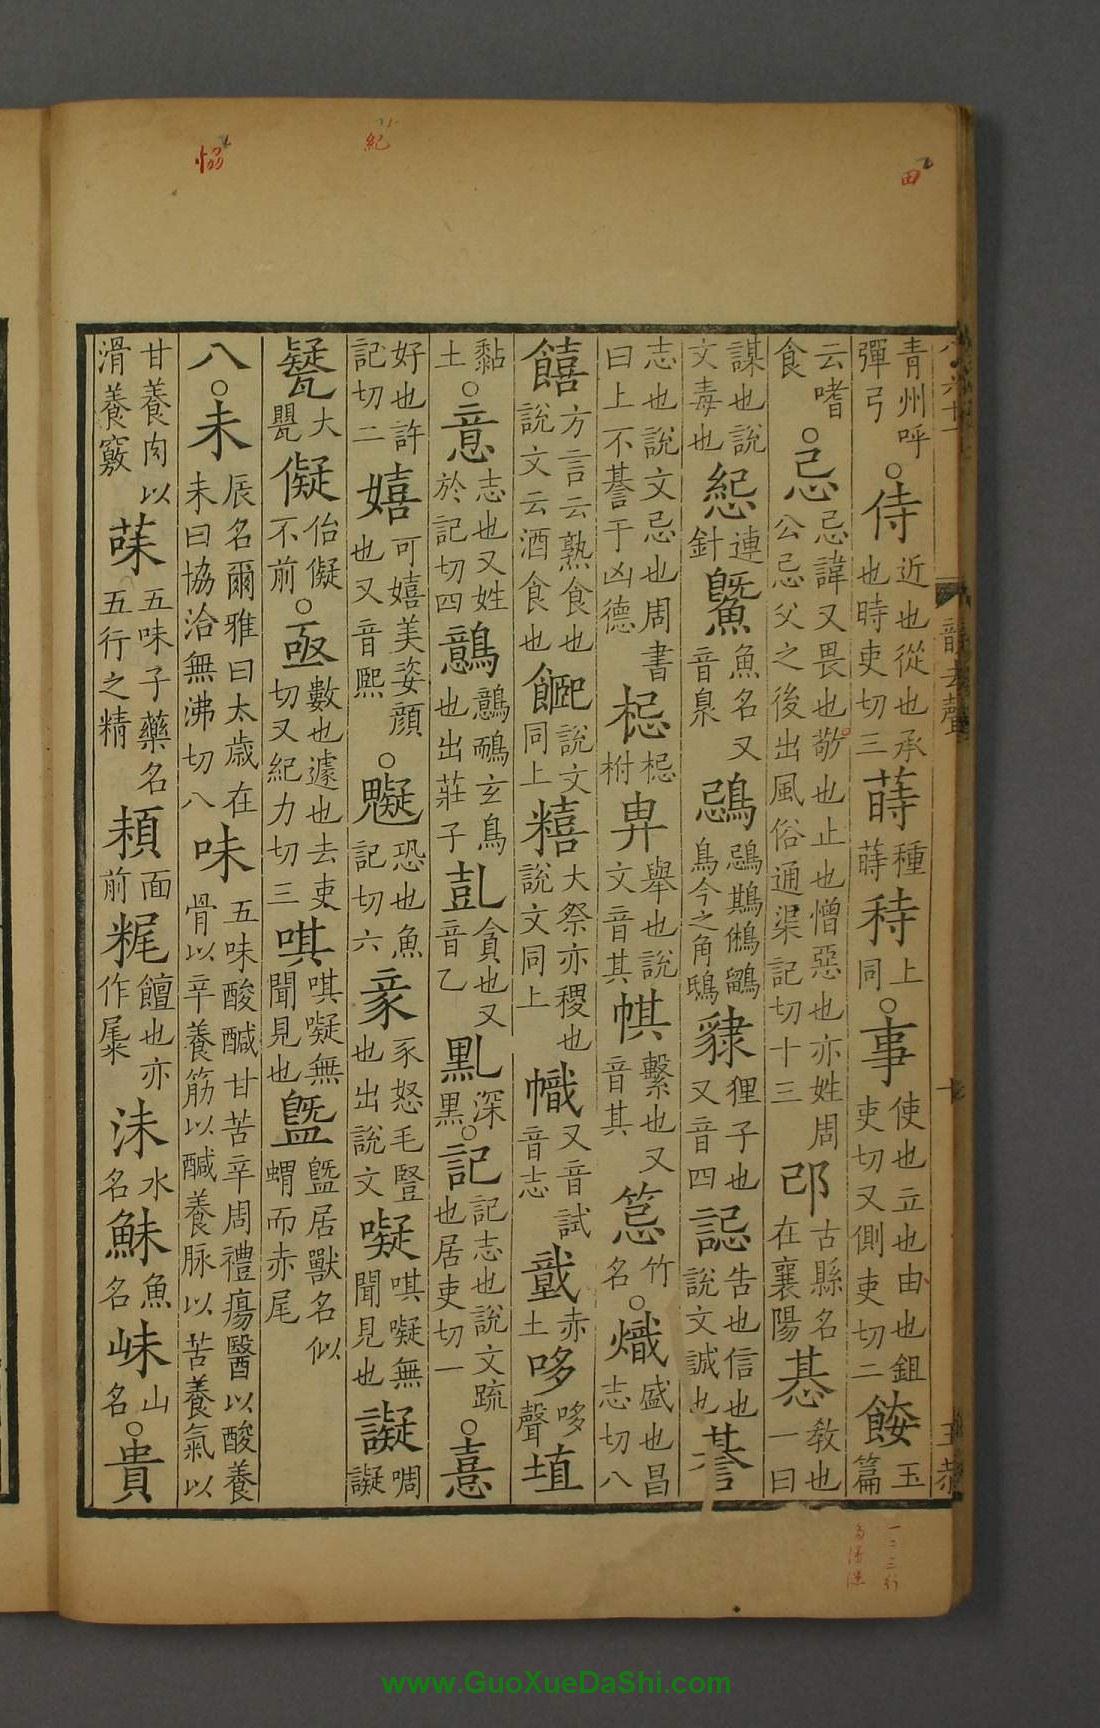 田
紀
愵
青州呼彈弓○侍近也從也承也時吏切三蒔種蒔秲上同○事使也立也由也鉏吏切又側吏切二餕玉篇
云嗜食○忌忌諱又畏也敬也止也憎惡也亦姓周公忌父之後出風俗通渠記切十三邔古縣名在襄陽惎教也一曰
謀也說文毒也䋟連針鱀魚名又音臮鵋鵋䳢鵂鶹鳥今之角鴟𧳙狸子也又音四誋告也信也說文誡也諅
志也說文忌也周書曰上不諅于凶德梞梞柎畁舉也說文音其帺繫也又音其䇫竹名○熾盛也昌志切八
饎方言云熟食也說文云酒食也𩜁說文同上糦大祭亦稷也說文同上幟又音試音志戠赤土哆哆聲埴
黏土○意志也又姓於記切四鷾鷾鴯玄鳥也出莊子亄貪也又音乙黓深黑○記記志也說文疏也居吏切一○憙
好也許記切二嬉可嬉美姿顏也又音熙○䰯恐也魚記切六㣇豕怒毛豎也出說文𠿿唭𠿿無聞見也譺啁譺
㽈大甖儗佁儗不前○亟數也遽也去吏切又紀力切三唭唭𠿿無聞見也䁶䁶居獸名似蝟而赤尾
八○未辰名爾雅曰太歲在未曰協洽無沸切八味五味酸醎甘苦辛周禮瘍醫以酸養骨以辛養筋以醎養脉以苦養氣以
甘養肉以滑養竅菋五味子藥名五行之精頛面前䊊饘也亦作糜沬水名鮇魚名㭑山名○貴
韻去聲
一二三行
www.GuoXueDaShi.com